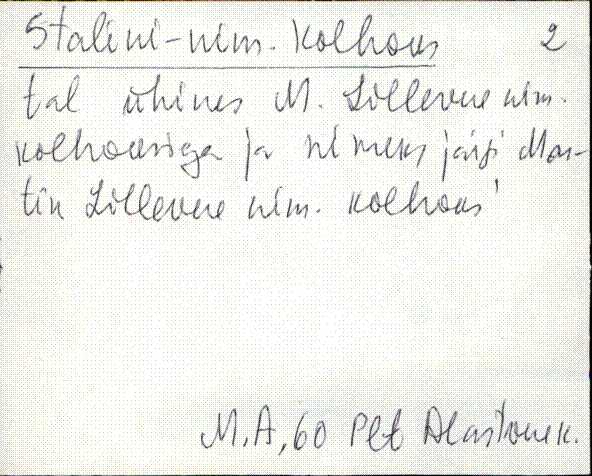 Stalini-nim. kolhoos 2
tal ühines M. Lillevere nim.
kolhoosiga ja nimeks jäi Mar-
tin Lillevere nim. kolhoos'
M.A, 60 Plt